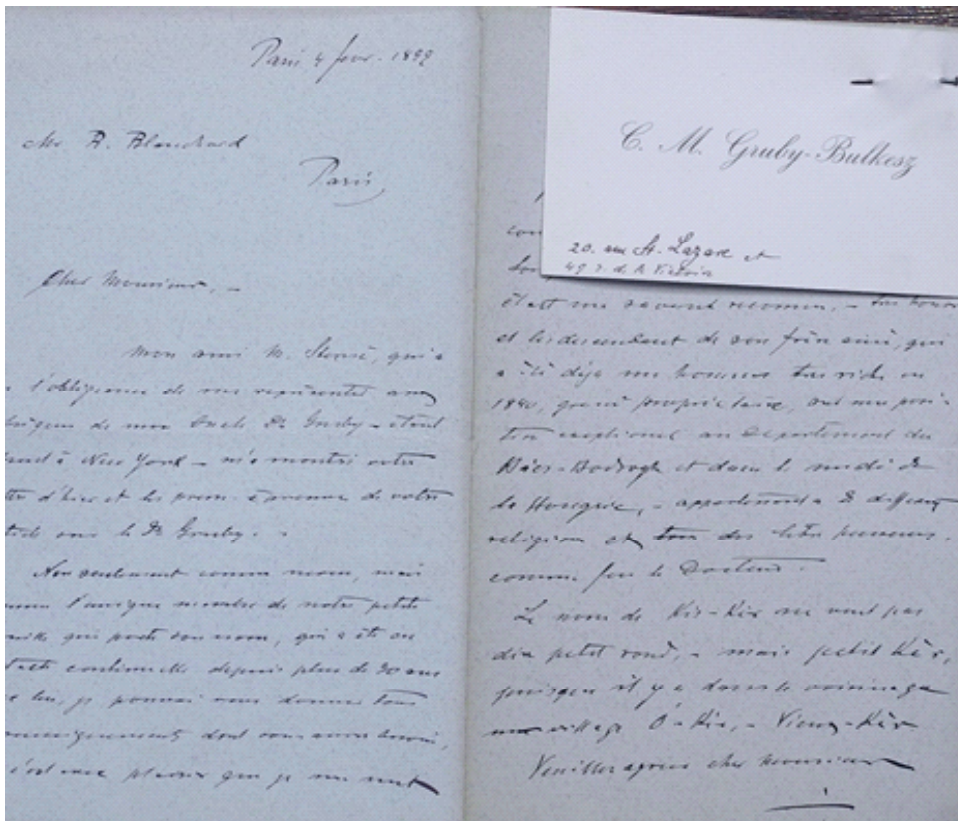 Paris 4 fevr. 1899
Mr R. Blanchard
Paris
Cher Monsieur, -
Mon ami M. Storcé, qui a
l'obligeance de me représenter aux
de mon Oncle Dr Gruby - étant
à New York - m'a montré votre
d'hier et les de votre
sur le Dr Gruby. -
Non seulement comme neveu, mais
comme l'unique membre de notre petite
famille qui porte son nom, qui a été en
continuelle depuis plus de 30 ans
lui, je pourrai vous donner tous
renseignements dont vous aurez besoin,
c'est avec plaisir que je me met
C. M. Gruby-Bulkesz
20. rue St. Lazare et
49 r. de la Victoire
était me
et les descendant de son frère ainé, qui
a été déja un homme très riche en
1840, grand propriétaire, ont une posi-
tion exceptionel au Departement du
Bács-Bodrogh et dans le midi de
la Hongrie, - appartenant a 3 different
religion et tous des libre penseurs.
comme feu le Docteur.
Le nom de Kis-Kér ne veut pas
dire petit rond, - mais petit Kér,
puisque il y a dans le voisinage
un village Ó-Kér, - Vieux-Kér
Veuillez agréer cher Monsieur